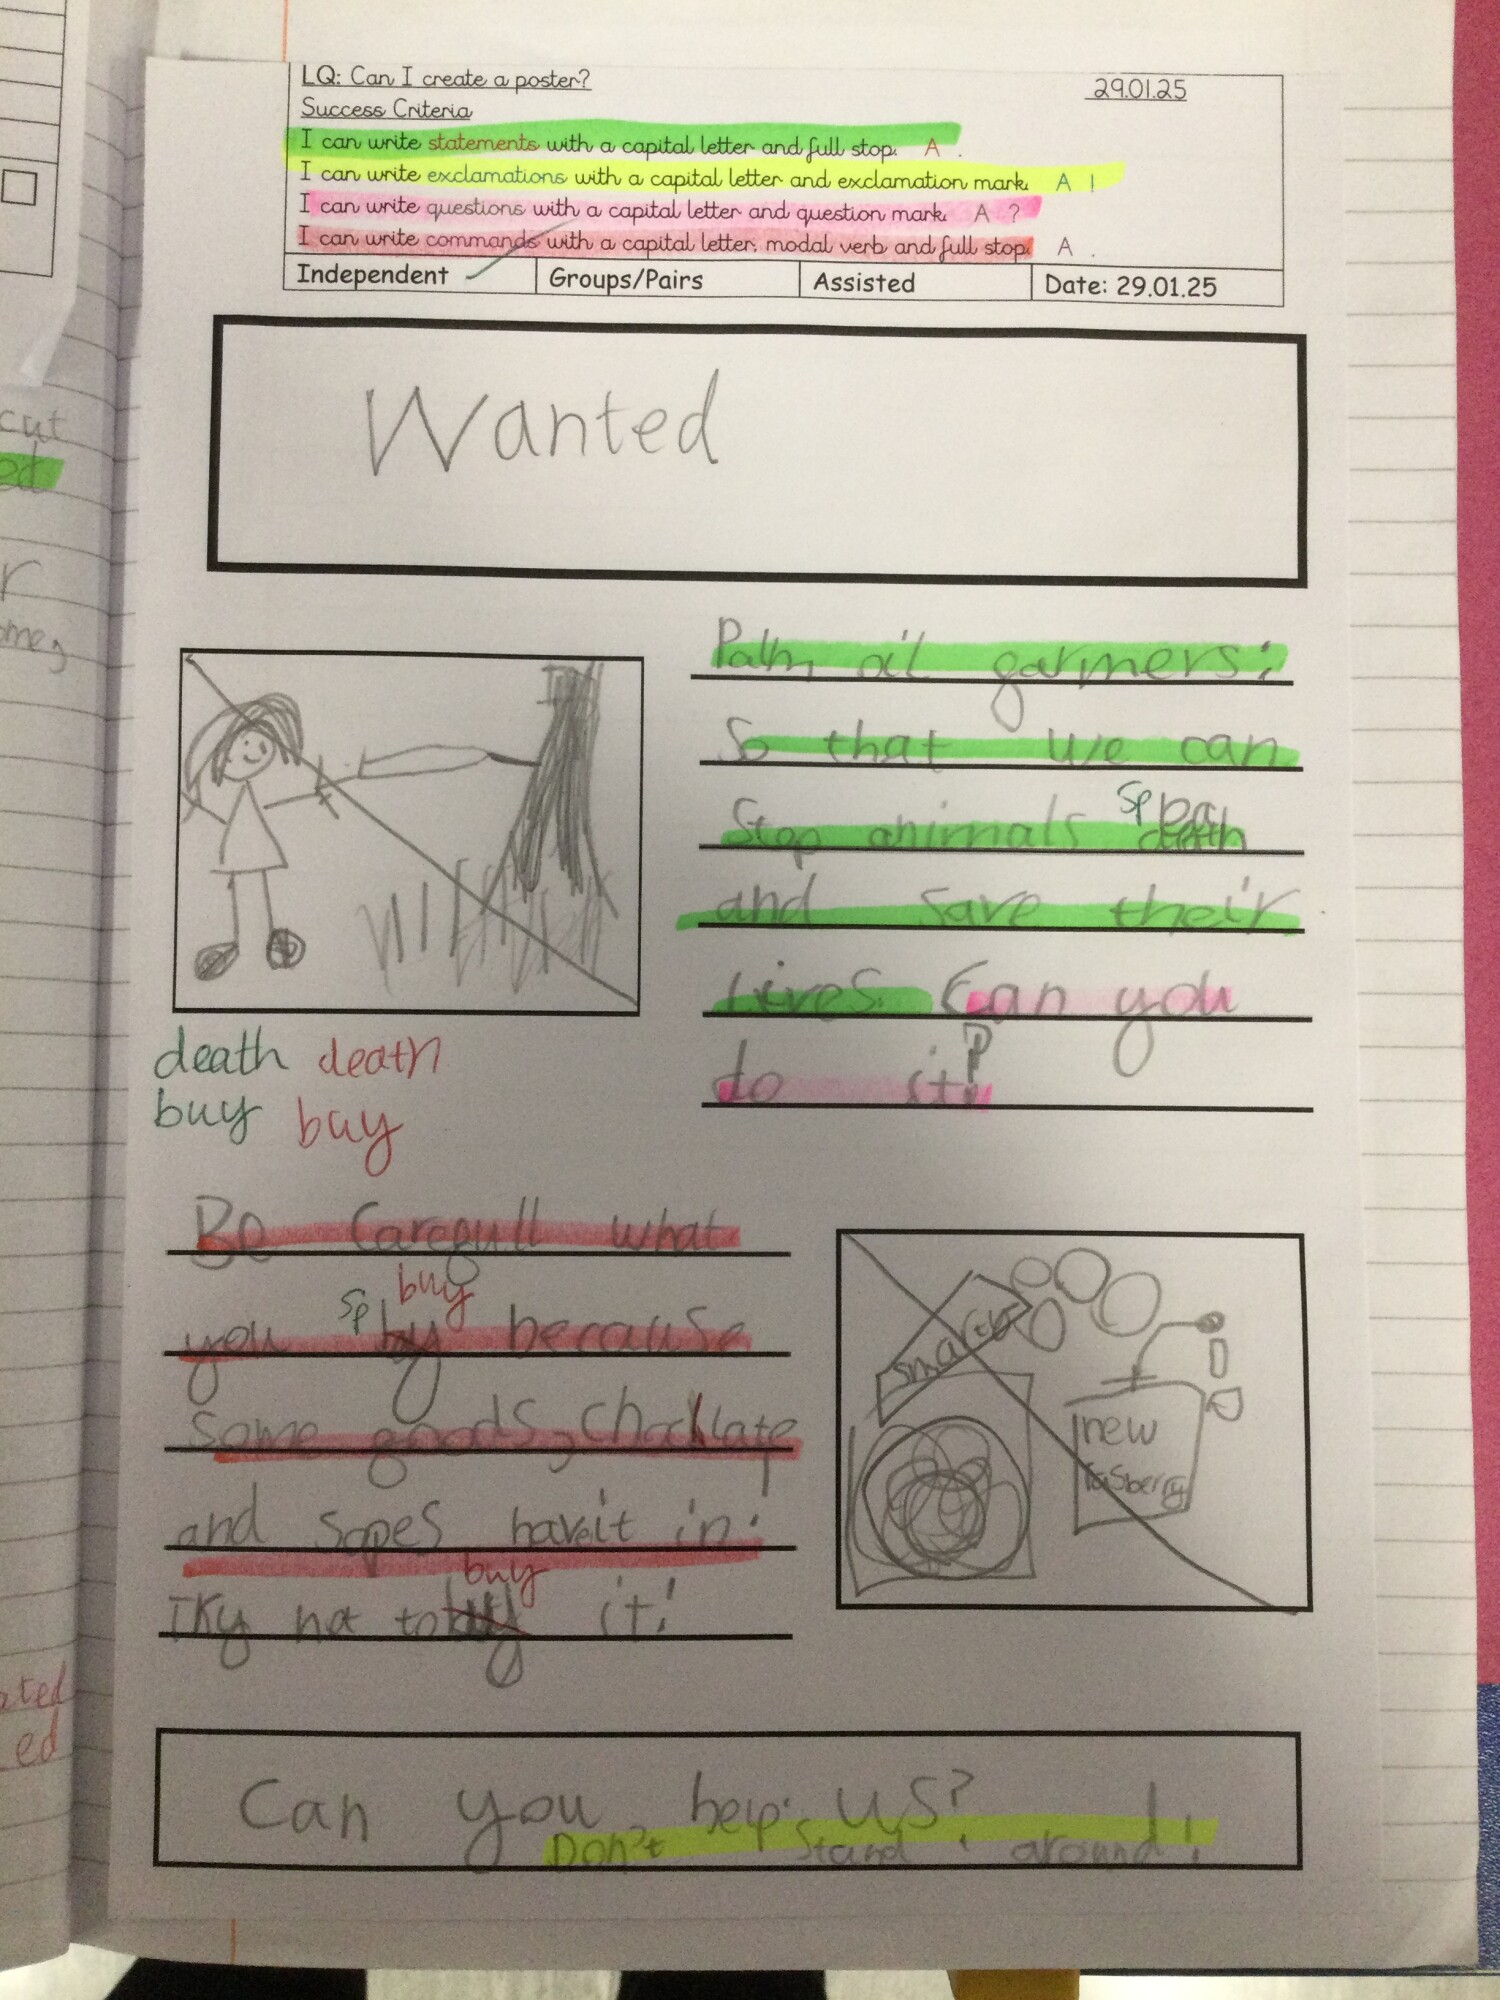 LQ: Can I create a poster?
29.01.25
Success Criteria
I can write statements with a capital letter and full stop. A .
I can write exclamations with a capital letter and exclamation mark. A !
I can write questions with a capital letter and question mark. A ?
I can write commands with a capital letter, modal verb and full stop. A .
Independent
Groups/Pairs
Assisted
Date: 29.01.25
cut
ed
r
ome,
Wanted
Palm oil garmers:
So that we can
Stop animals sp death
and save their
lives. Can you
do it?
death death
buy buy
Be Caregull what
buy
you sp by because
Some goods, Chocklate
and Sopes have it in.
buy
Try not to it!
Smartys
new
rasberry
ated
ed
Can you help us?
Don't Stand around!